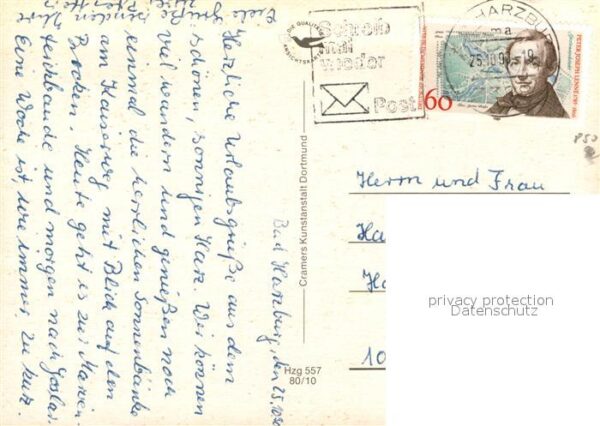 Bad Harzburg, den 25.10.90
Herzliche Urlaubsgrüße aus dem
schönen, sonnigen Harz. Wir können
viel wandern und genießen noch
einmal die herrlichen Sonnenbänke
am Kaiserweg mit Blick auf den
Brocken. Heute geht es zur Marien-
teichbaude und morgen nach Goslar.
Eine Woche ist, wie immer, zu kurz.
Viele Grüße senden Ihre
DIE QUALITÄTS
ANSICHTSKARTE
Schreib
mal
wieder
Post
HARZBURG
25.10.90
60
PETER JOSEPH LENNÉ 1789-1866
Cramers Kunstanstalt Dortmund
Hzg 557
80/10
Herrn und Frau
Ha
Ha
10
privacy protection
Datenschutz